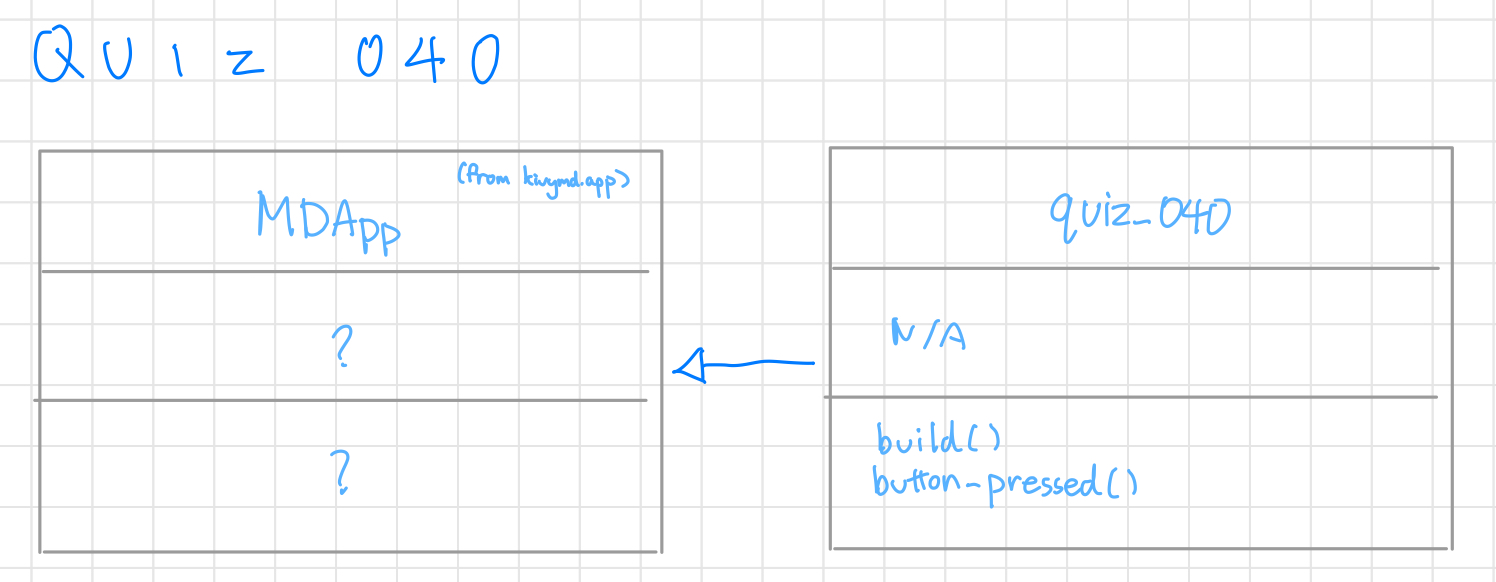 QUIZ 040
(from kivymd.app)
MDApp
?
?
quiz_040
N/A
build()
button_pressed()